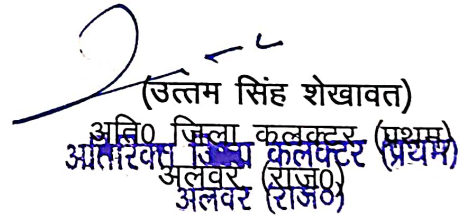 (उत्तम सिंह शेखावत)
अति0 जिला कलक्टर (प्रथम)
अतिरिक्त जिला कलेक्टर (प्रथम)
अलवर (राज0)
अलवर (राज0)